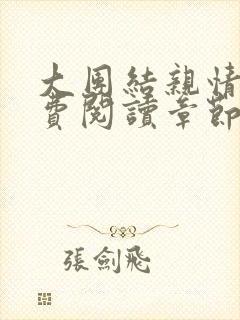 大團結親情
費閱讀章節
張劍飛